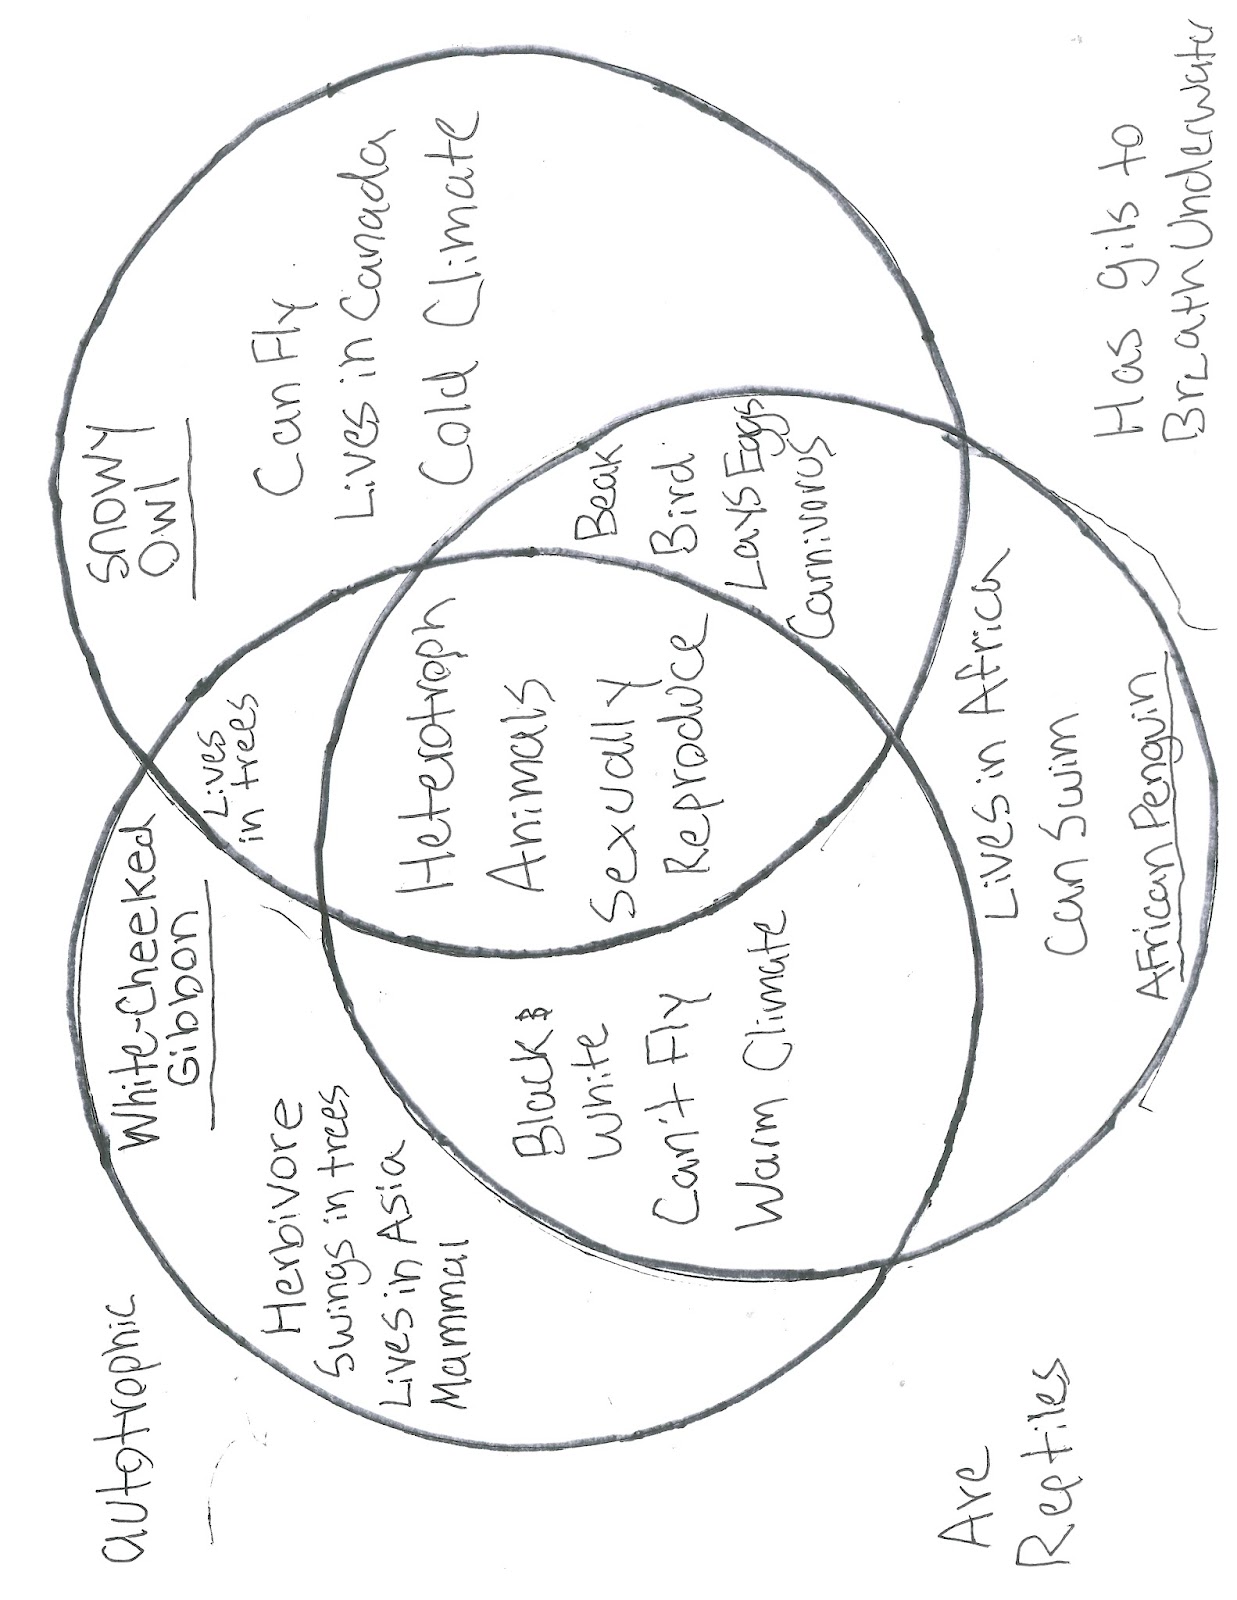 autotrophic
White-Cheeked
Gibbon
Herbivore
Swings in trees
Lives in Asia
Mammal
Lives
in trees
Snowy
Owl
Can Fly
Lives in Canada
Cold Climate
Heterotroph
Animals
Sexually
Reproduce
Black &
White
Can't Fly
Warm Climate
Beak
Bird
Lays Eggs
Carnivorus
Lives in Africa
Can Swim
African Penguin
Are
Reptiles
Has gils to
Breath Underwater